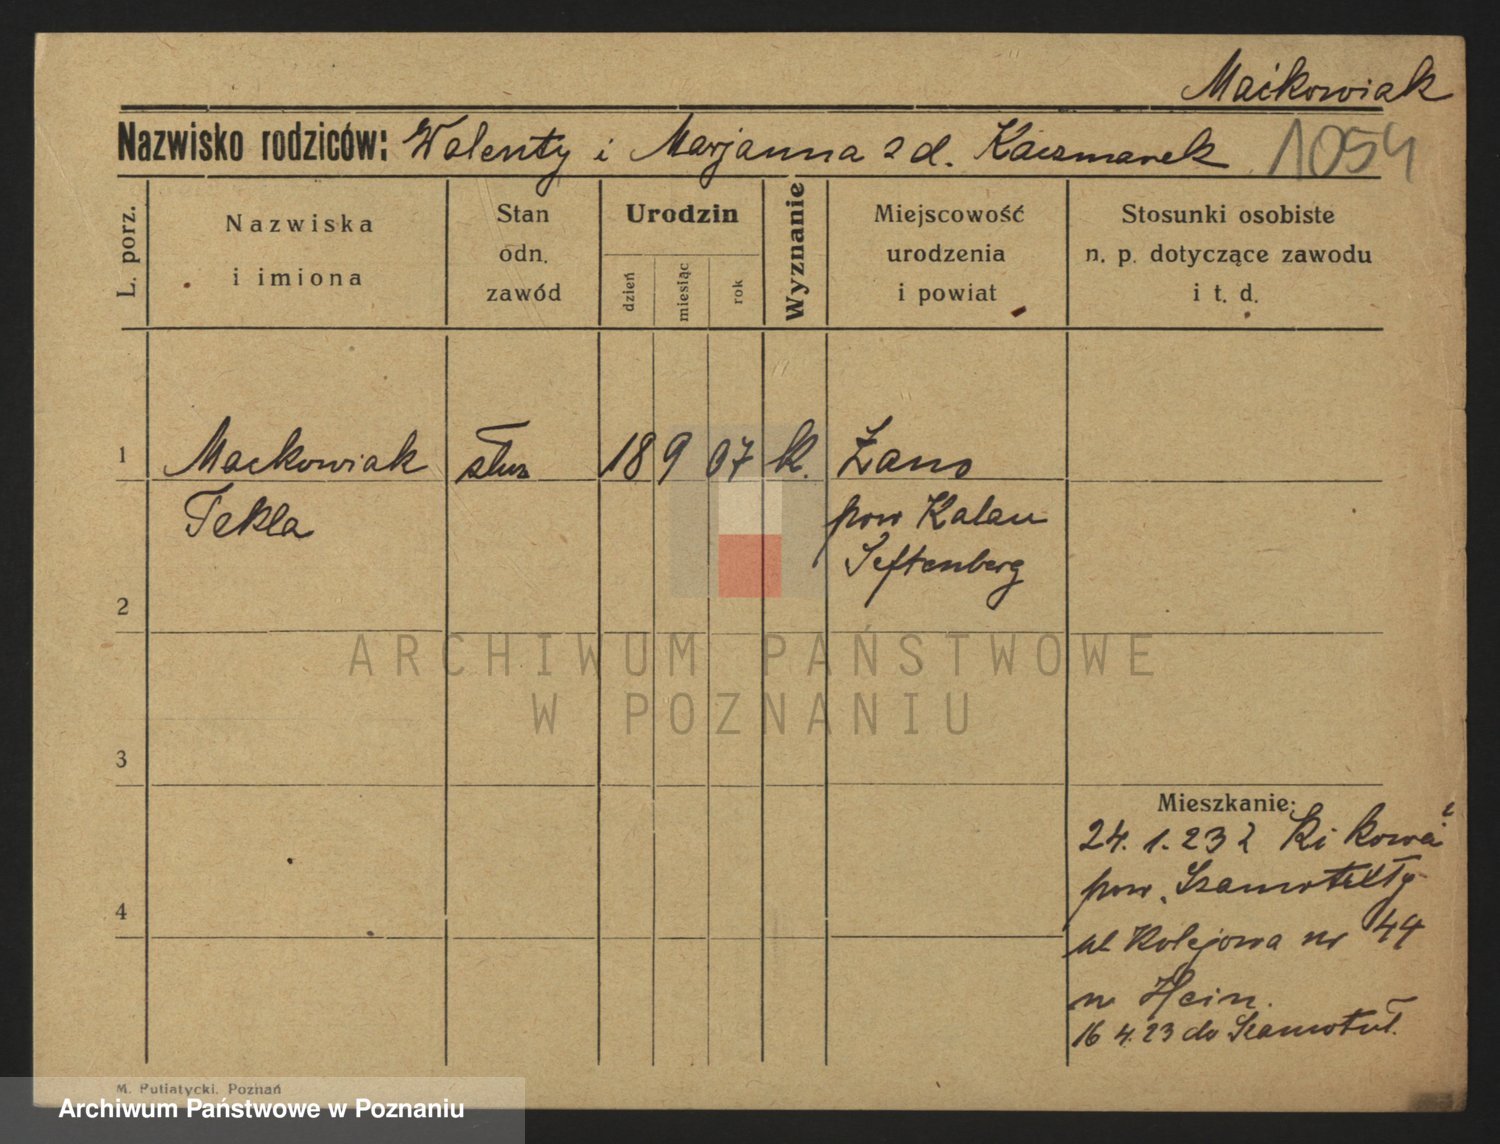 Maćkowiak
Nazwisko rodziców: Walenty i Marjanna z d. Kaczmarek 1054
L. porz.
Nazwiska
i imiona
Stan
odn.
zawód
Urodzin
dzień
miesiąc
rok
Wyznanie
Miejscowość
urodzenia
i powiat
Stosunki osobiste
n. p. dotyczące zawodu
i t. d.
1 Mackowiak służ 18 9 07 k. Żano
Tekla pow Kalau
Seftenberg
2
3
4
Mieszkanie:
24. 1. 23 z
pow. Szamotuły
ul Kolejowa nr 44
w Hein.
16 4. 23 do Szamotuł.
ARCHIWUM PAŃSTWOWE
W POZNANIU
M. Putiatycki, Poznań
Archiwum Państwowe w Poznaniu